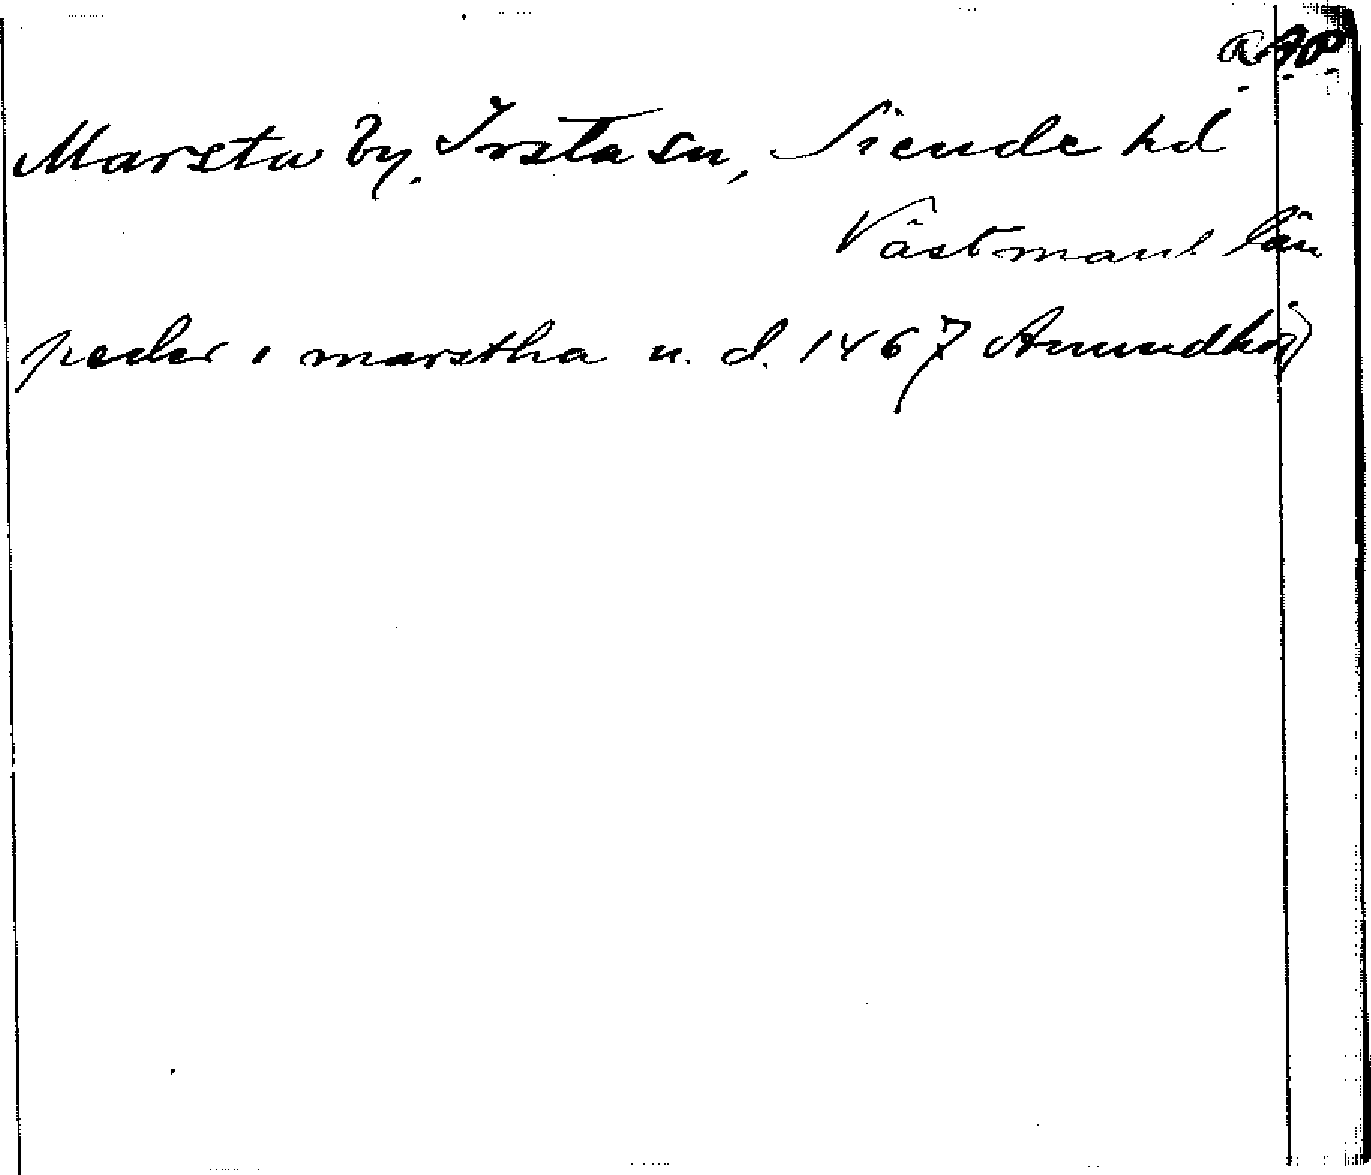 Marsta by, Irsta sn, Siende hd
Västmanl län
peder i marstha u. d. 1467 Anundhög